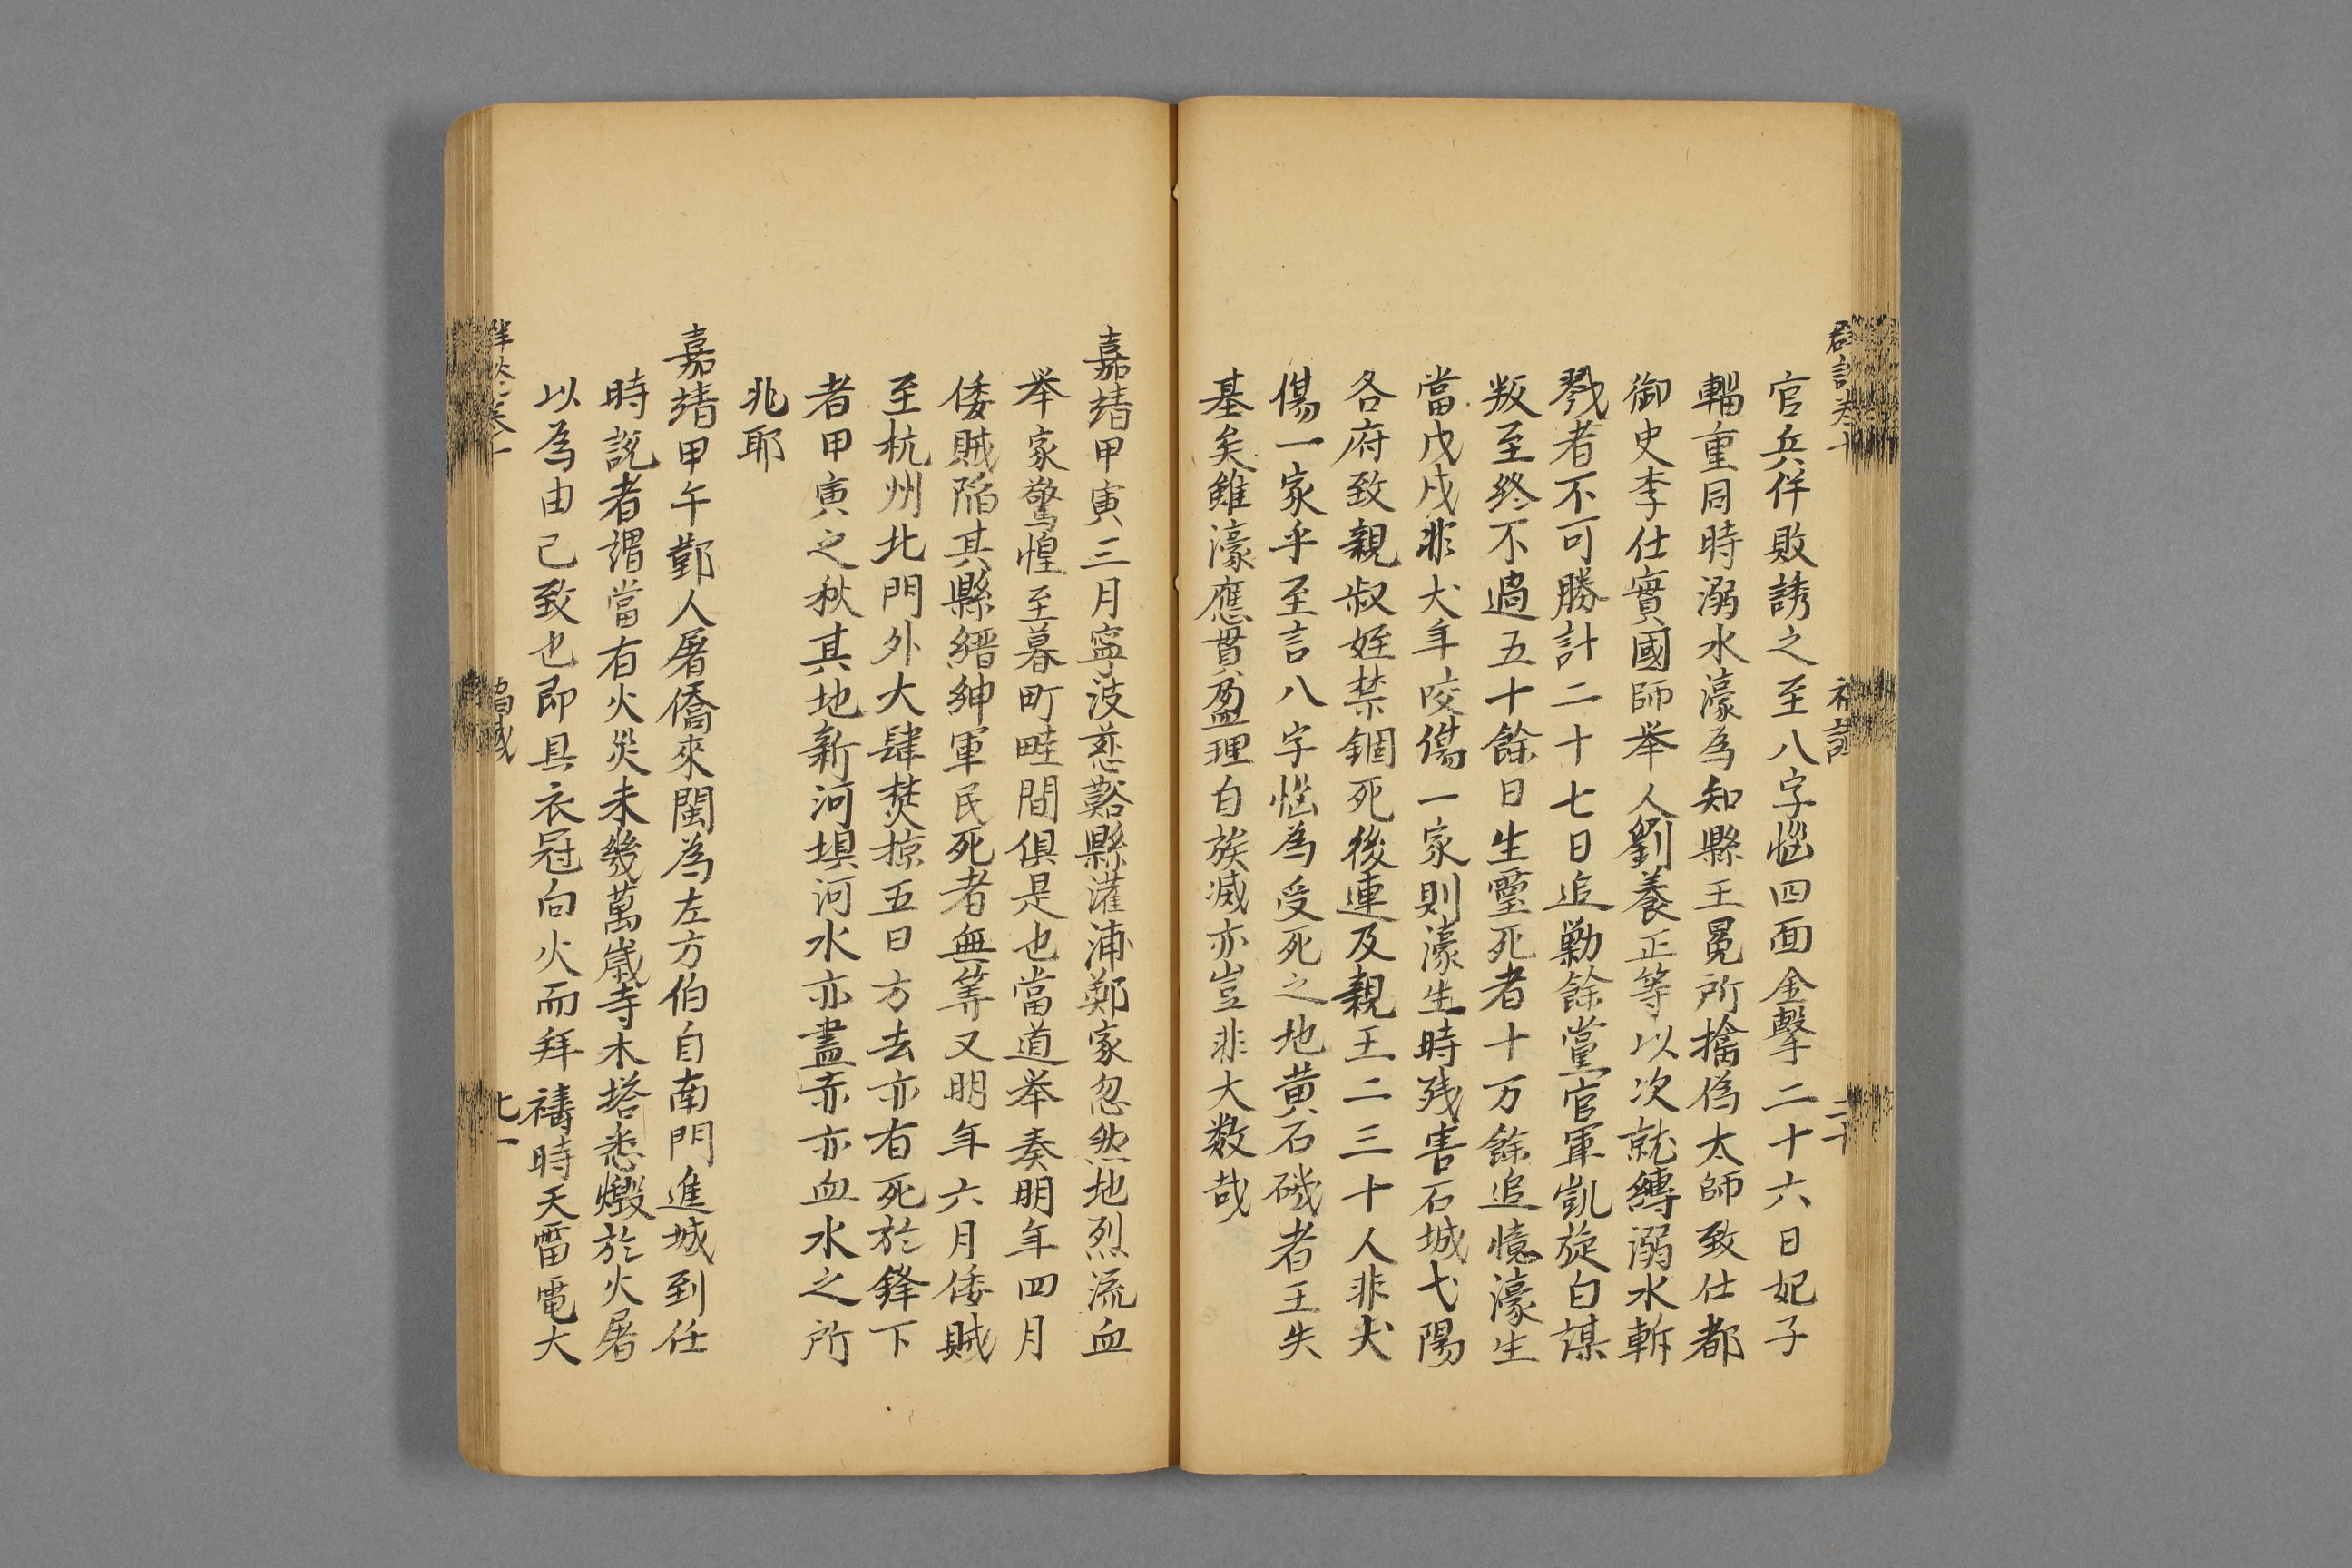 官兵佯敗誘之至八字惱四面金擊二十六日妃子
輜重同時溺水濠為知縣王冕所擒偽太師致仕都
御史李仕實國師举人劉養正等以次就縛溺水斬
戮者不可勝計二十七日追勦餘黨官軍凱旋自謀
叛至終不過五十餘日生靈死者十万餘追憶濠生
當戊戌非犬年咬傷一家則濠生時残害石城弋陽
各府致親叔姪禁錮死後連及親王二三十人非犬
傷一家乎至言八字惱為受死之地黄石磯者王失
基矣雖濠應貫盈理自族滅亦豈非大数哉
嘉靖甲寅三月寧波慈谿縣灌浦鄭家忽然地烈流血
举家驚惶至暮町畦間俱是也當道举奏明年四月
倭賊陷其縣縉紳軍民死者無筭又明年六月倭賊
至杭州北門外大肆焚掠五日方去亦有死於鋒下
者甲寅之秋其地新河埧河水亦盡赤亦血水之所
兆耶
嘉靖甲午鄞人屠僑來閩為左方伯自南門進城到任
時説者謂當有火災未幾萬嵗寺木塔悉燬於火屠
以為由己致也即具衣冠向火而拜禱時天雷電大